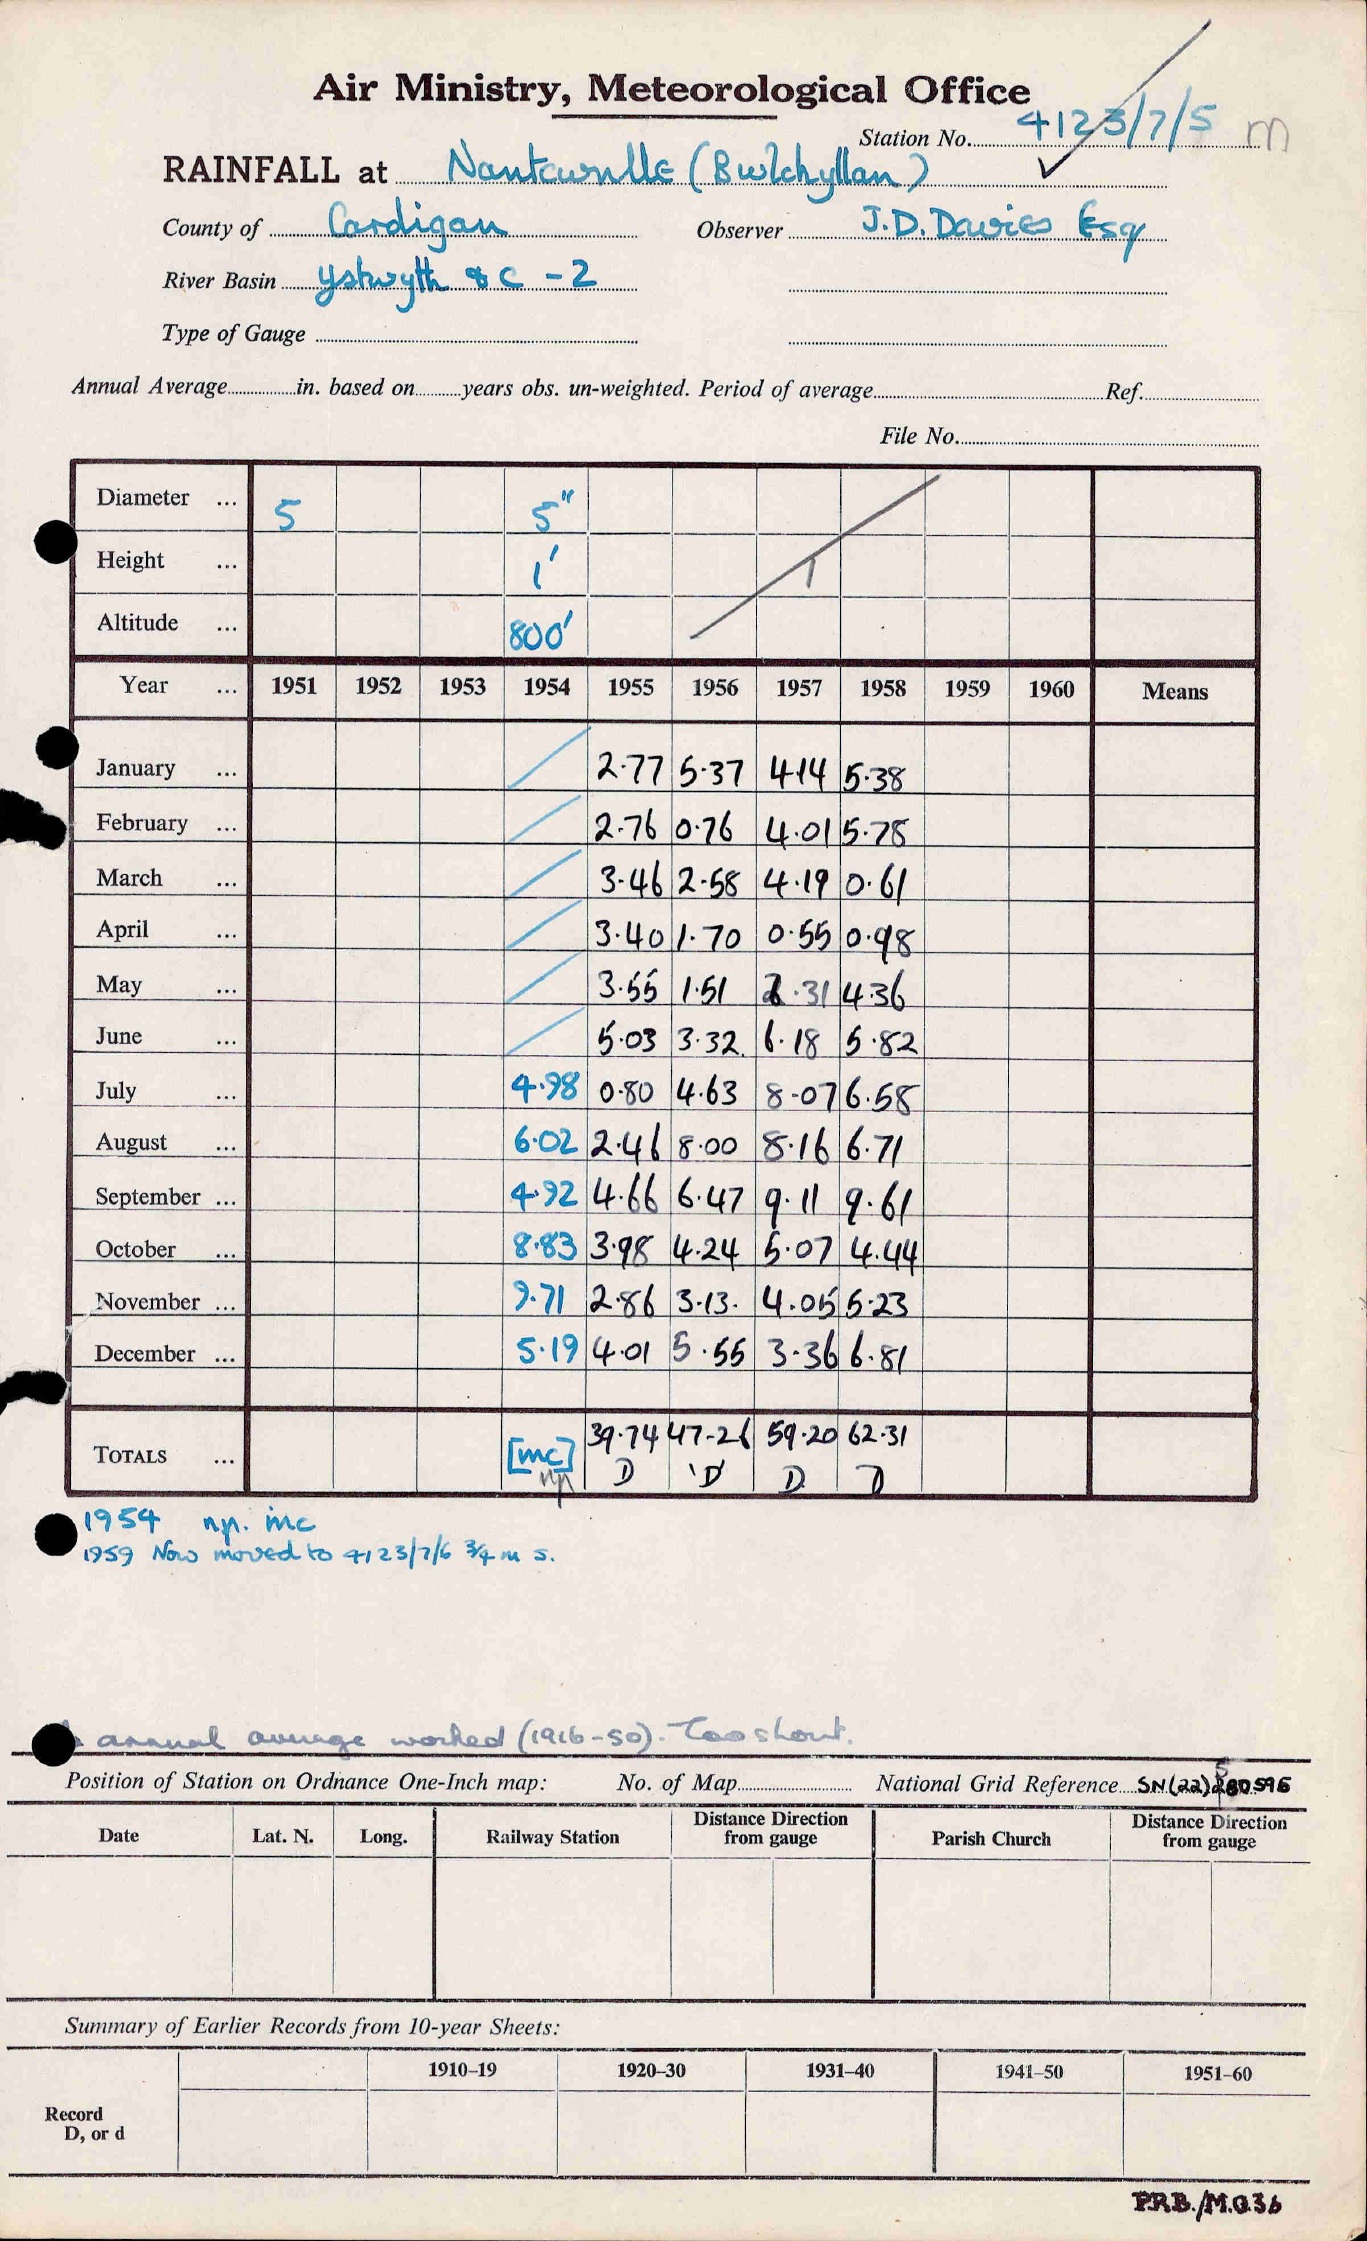 Air Ministry, Meteorological Office
Station No. 4123/7/5 m
RAINFALL at Nantcwnlle (Bwlchyllan)
County of Cardigan Observer J.D. Davies Esq
River Basin Ystwyth & C -2
Type of Gauge
Annual Average in. based on years obs. un-weighted. Period of average Ref.
File No.
Diameter ... 5 5"
Height ... 1' 1
Altitude ... 800'
Year ... 1951 1952 1953 1954 1955 1956 1957 1958 1959 1960 Means
January ... 2.77 5.37 4.14 5.38
February ... 2.76 0.76 4.01 5.78
March ... 3.46 2.58 4.19 0.61
April ... 3.40 1.70 0.55 0.98
May ... 3.55 1.51 2.31 4.36
June ... 5.03 3.32 6.18 5.82
July ... 4.98 0.80 4.63 8.07 6.58
August ... 6.02 2.46 8.00 8.16 6.71
September ... 4.92 4.66 6.47 9.11 9.61
October ... 8.83 3.98 4.24 5.07 4.44
November ... 9.71 2.86 3.13 4.05 5.23
December ... 5.19 4.01 5.55 3.36 6.81
TOTALS ... [inc] 39.74 47.26 59.20 62.31
np D 'D' D D
1954 n.p. inc
1959 Now moved to 4123/7/6 3/4 m S.
annual average worked (1916-50). Too short.
Position of Station on Ordnance One-Inch map: No. of Map National Grid Reference SN(22) 580596
Date Lat. N. Long. Railway Station Distance Direction from gauge Parish Church Distance Direction from gauge
Summary of Earlier Records from 10-year Sheets:
1910–19 1920–30 1931–40 1941–50 1951–60
Record
D, or d
P.R.B./M.O.36